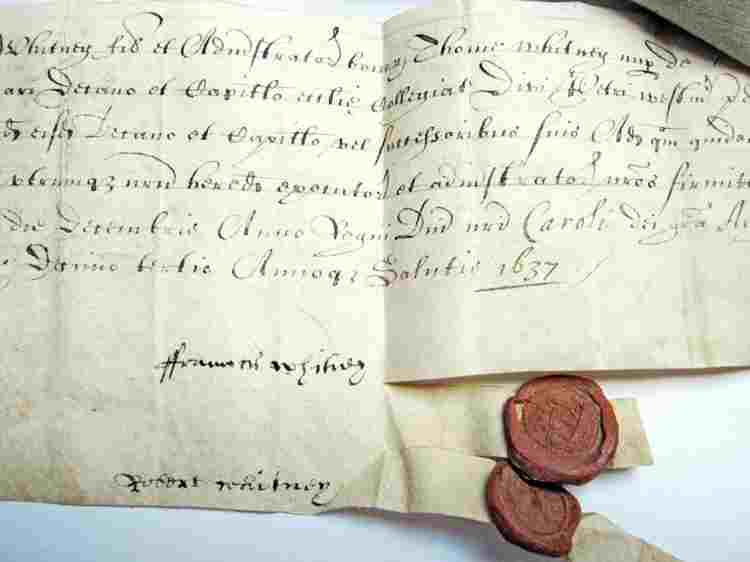 Whitney fil’ et Administrator bonor’ Thome Whitney nup’ de
Decano et Capitlo ecclie Collegiat Divi Petri Westm’
eisd’ Decano et Capitlo vel successoribus suis Ad quam quidem
utrumqz nr̄m hered’ executor’ et administrator’ nr̄os firmit’
die Decembris Anno Regni Dn̄i nr̄i Caroli dei gr̄a
Decimo tertio Annoqz Salutis 1637
ffrancis Whitney
Robert Whitney